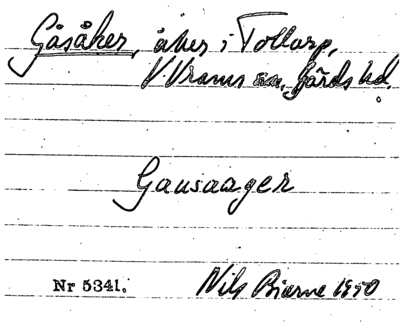 Gåsåker, åker i Tollarp,
V. Vrams sn. Gärds hd.
Gausaager
Nr 5341. Nils Bierne 1950